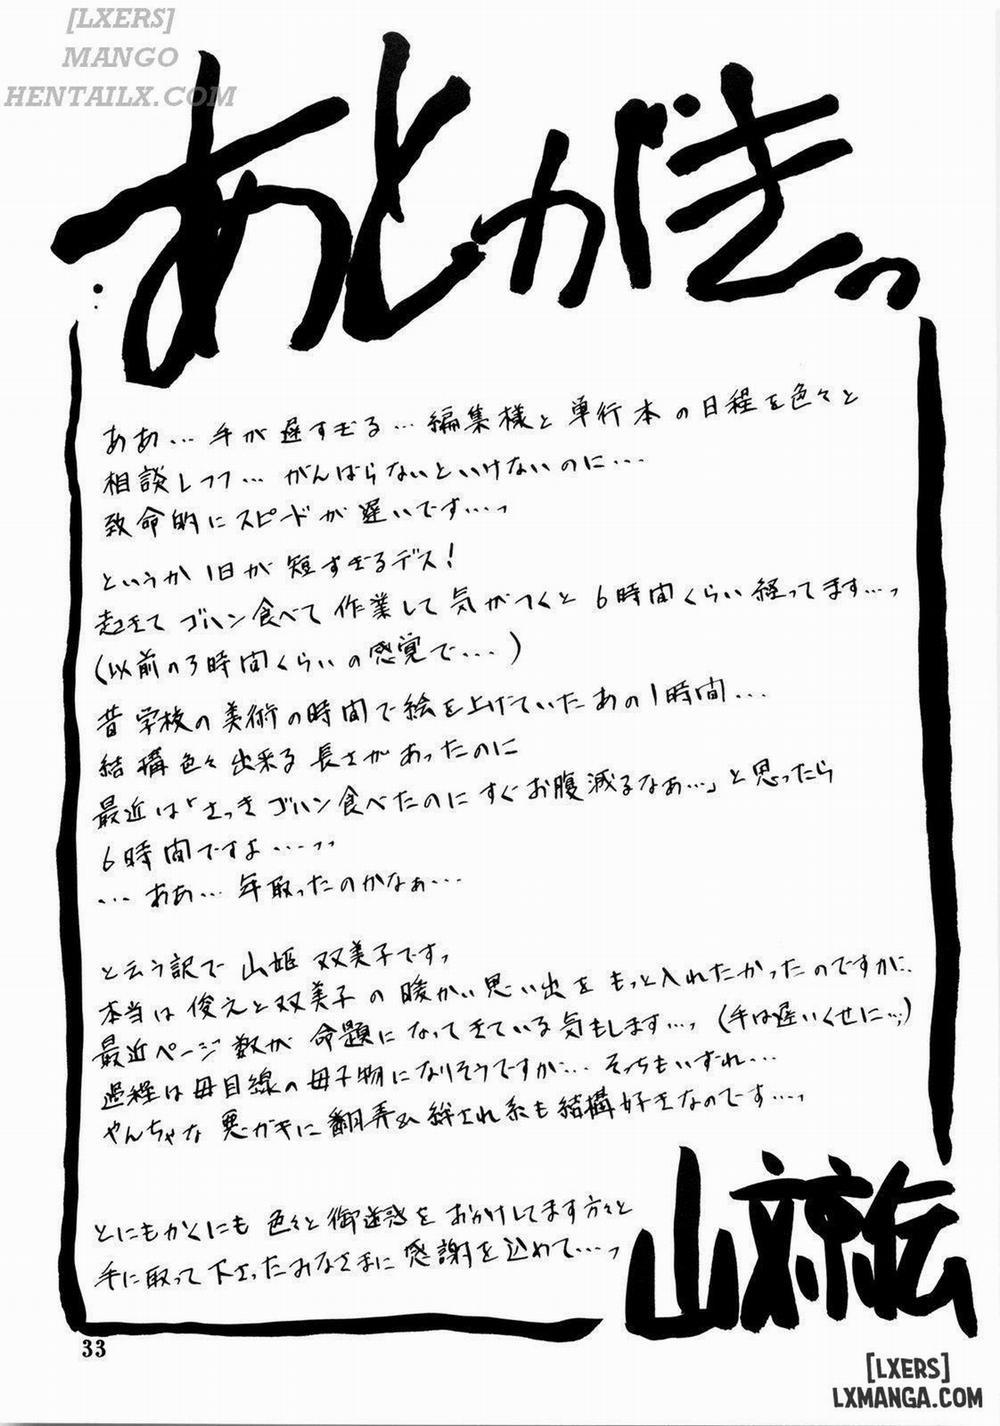 [LXERS]
MANGO
HENTAILX.COM
あとがきっ
ああ…手が遅すぎる…編集様と単行本の日程を色々と
相談しつつ…がんばらないといけないのに…
致命的にスピードが遅いです…っ
というか1日が短すぎるデス!
起きてゴハン食べて作業して気がつくと6時間くらい経ってます…っ
(以前の3時間くらいの感覚で…)
昔学校の美術の時間で絵を上げていたあの1時間…
結構色々出来る長さがあったのに
最近は「さっきゴハン食べたのにすぐお腹減るなぁ…」と思ったら
6時間ですよ…っっ
…ああ…年取ったのかなぁ…
と云う訳で山姫双美子ですっ
本当は俊えと双美子の暖かい思い出をもっと入れたかったのですが、
最近ページ数が命題になってきている気もします…っ(手は遅いくせに…)
過程は母目線の母子物になりそうですが…そっちもいずれ…
やんちゃな悪ガキに翻弄&絆され系も結構好きなのです…っ
とにもかくにも色々と御迷惑をおかけしてます方々と
手に取って下さったみなさまに感謝を込めて…っ
山文京伝
33
[LXERS]
LXMANGA.COM